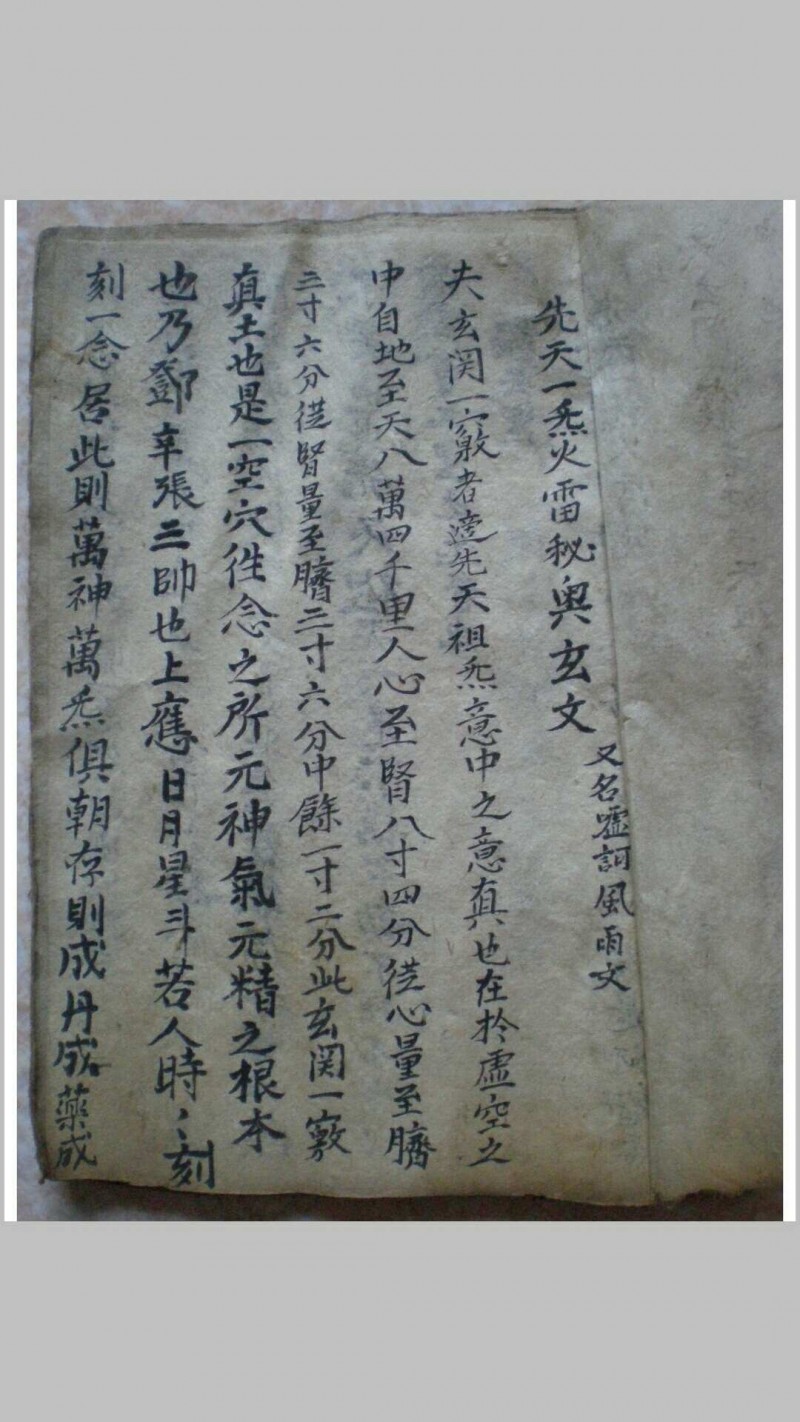 先天一炁火雷秘奥玄文
又名嘘訶風雨文
夫玄関一竅者還先天祖炁意中之意真也在扵虚空之
中自地至天八萬四千里人心至腎八寸四分從心量至臍
三寸六分從腎量至臍三寸六分中餘一寸二分此玄関一竅
真土也是一空穴徃念之所元神氣元精之根本
也乃鄧辛張三帥也上應日月星斗若人時〻刻
刻一念居此則萬神萬炁俱朝存則成丹成藥成